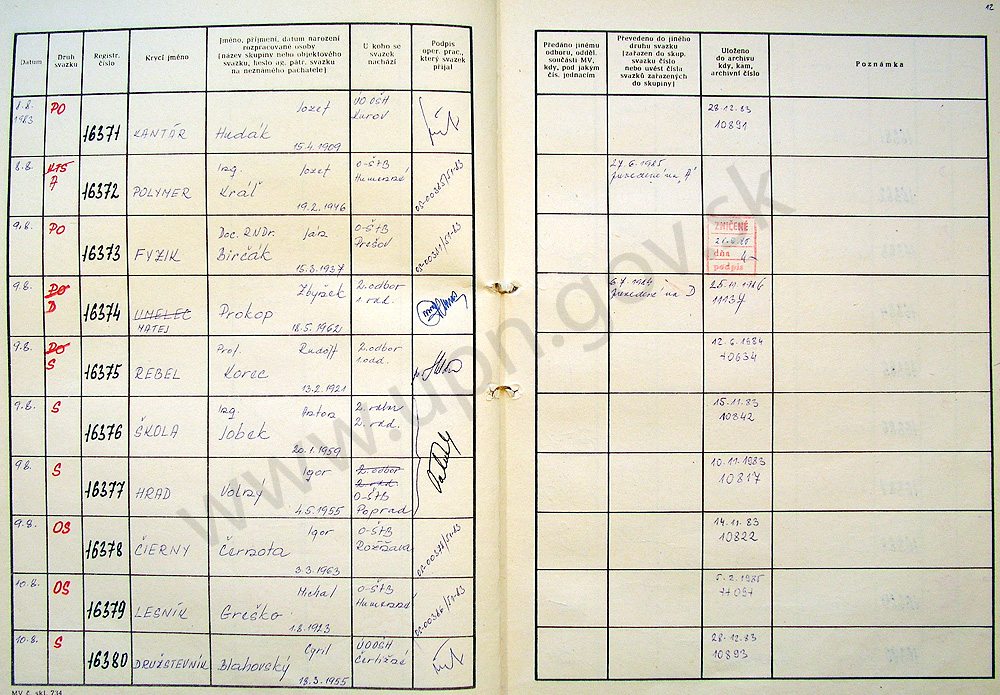 12
Datum
Druh svazku
Registr. číslo
Krycí jméno
Jméno, příjmení, datum narození
rozpracované osoby
(název skupiny nebo objektového
svazku, heslo ag. pátr. svazku
na neznámého pachatele)
U koho se
svazek
nachází
Podpis
oper. prac.,
který svazek
přijal
Předáno jinému
odboru, odděl.
součásti MV,
kdy, pod jakým
čís. jednacím
Převedeno do jiného
druhu svazku
(zařazen do skup.
svazku číslo
nebo uvést čísla
svazků zařazených
do skupiny)
Uloženo
do archivu
kdy, kam,
archivní číslo
Poznámka
8.8. 1983 PO 16371 KANTÁR Jozef
Hudák
15.4.1909
ÚO OŠH
28.12.83
10891
8.8. KTS
A
16372 POLYMER Ing. Jozef
Kráľ
19.2.1946
O-ŠtB
Humenné
27.6.1985
prevedené na „A"
9.8. PO 16373 FYZIK Doc. RNDr. Ján
Birčák
15.3.1937
O-ŠtB
Prešov
ZNIČENÉ
dňa
podpis
9.8. PO
D
16374 UMELEC
MATEJ
Zbyšek
Prokop
18.5.1962
2. odbor
1. odd.
prevedené na D
11137
9.8. PO
S
16375 REBEL Prof. Rudolf
Korec
13.2.1921
2. odbor
1. odd.
12.6.1984
10634
9.8. S 16376 ŠKOLA Ing. Anton
Jobek
20.1.1959
2. odbor
2. odd.
15.11.83
10842
9.8. S 16377 HRAD Igor
Volny
4.5.1955
2. odbor
2. odd.
O-ŠtB
Poprad
10.11.1983
10817
9.8. OS 16378 ČIERNY Igor
Černota
3.3.1963
O-ŠtB
Rožňava
14.11.83
10822
10.8. OS 16379 LESNÍK Michal
Greško
1.8.1923
O-ŠtB
Humenné
5.2.1985
11091
10.8. S 16380 DRUŽSTEVNÍK Cyril
Blahovský
18.3.1955
ÚO OŠH
28.12.83
10893
MV č. skl. 734
www.upn.gov.sk